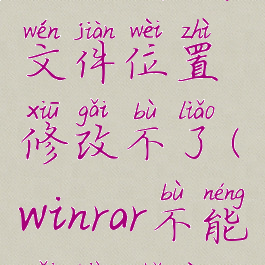 wén jiàn wèi zhì
文件位置
xiū gǎi bù liǎo
修改不了(
bù néng
winrar不能